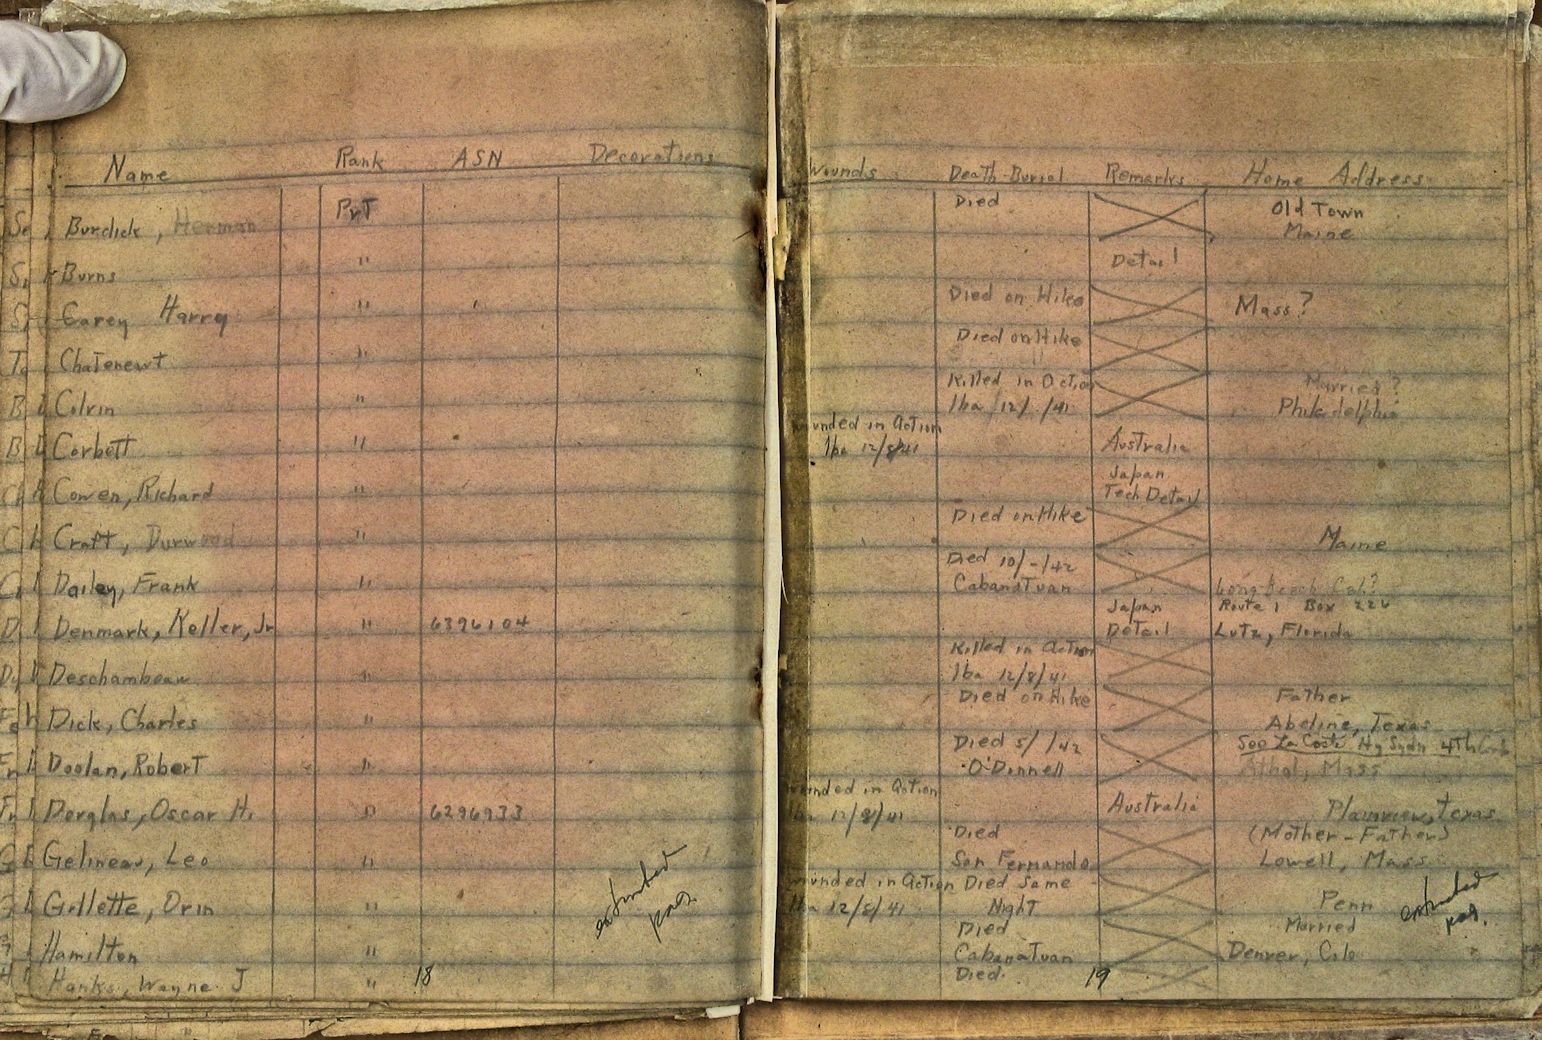 Name Rank ASN Decorations
Burdick, Herman Pvt
Burns "
Carey Harry "
Chatenewt "
Colvin "
Corbett "
Cowen, Richard "
Craft, Durwood "
Dailey, Frank "
Denmark, Keller, Jr " 6396104
Deschambeau "
Dick, Charles "
Doolan, Robert "
Douglas, Oscar H. " 6296933
Gelineau, Leo "
Gillette, Orin "
Hamilton "
Hanks, Wayne J "
extracted
18
Wounds Death-Burial Remarks Home Address
Died Old Town
Maine
Detail
Died on Hike Mass?
Died on Hike
Killed in Action Married?
Iba /12/ /41 Philadelphia
unded in action
Iba 12/8/41 Australia
Japan
Tech Detail
Died on Hike
Maine
Died 10/-/42
Cabanatuan Long Beach Cal?
Japan Route 1 Box 226
Detail Lutz, Florida
Killed in Action
Iba 12/8/41
Died on Hike Father
Abeline, Texas
Died 5/ /42 See La Coste Hq Sqdn 4th
O'Donnell Athol, Mass
unded in action
12/8/41 Australia Plainview, Texas
Died (Mother-Father)
San Fernando Lowell, Mass
wounded in action Died same
Iba 12/8/41 Night Penn
Died Married
Cabanatuan Denver, Colo
Died
extracted
19